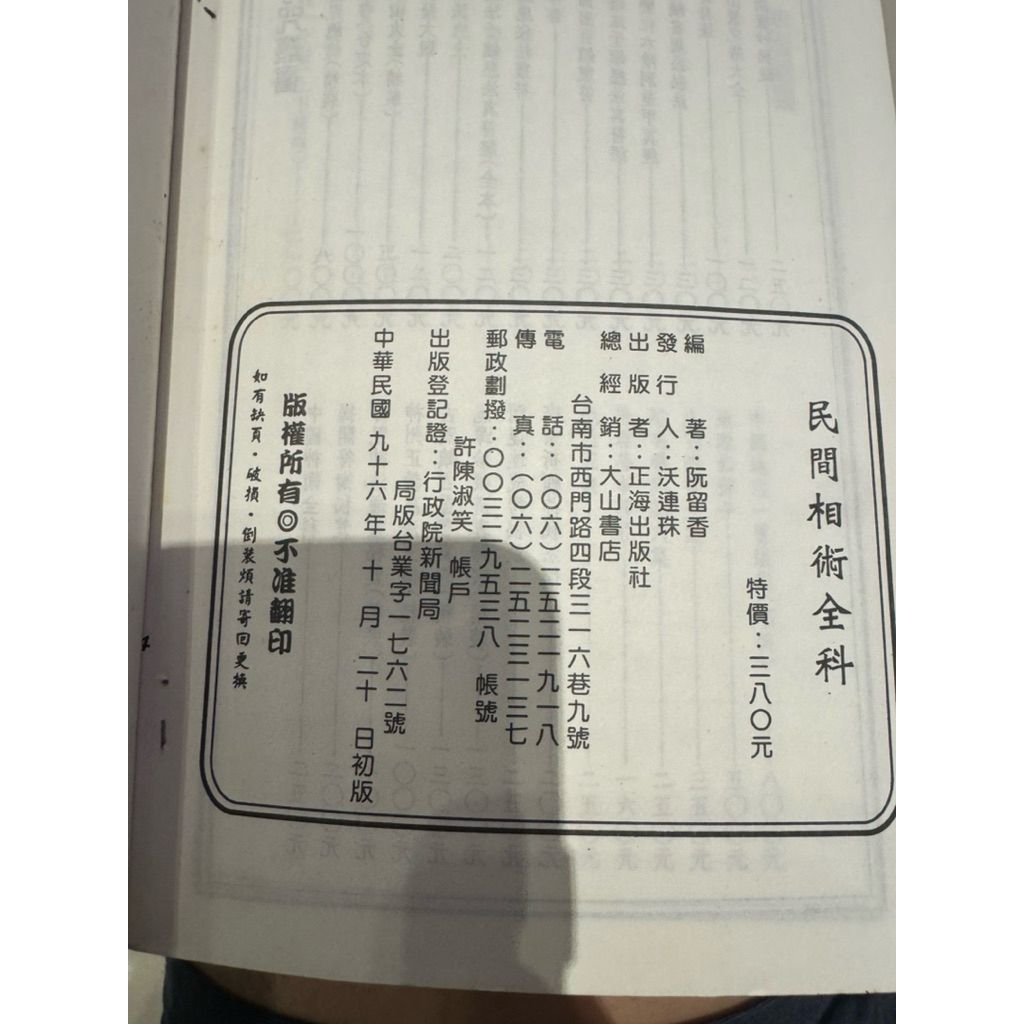 民間相術全科
特價：三八〇元
編著：阮留香
發行人：沃連珠
出版者：正海出版社
總經銷：大山書店
台南市西門路四段三一六巷九號
電話：（〇六）二五二一九一八
傳真：（〇六）二五二三一三七
郵政劃撥：〇〇三二九五三八 帳號
許陳淑笑 帳戶
出版登記證：行政院新聞局
局版台業字一七六二號
中華民國九十六年十月二十日初版
版權所有◎不准翻印
如有缺頁・破損・倒裝煩請寄回更換